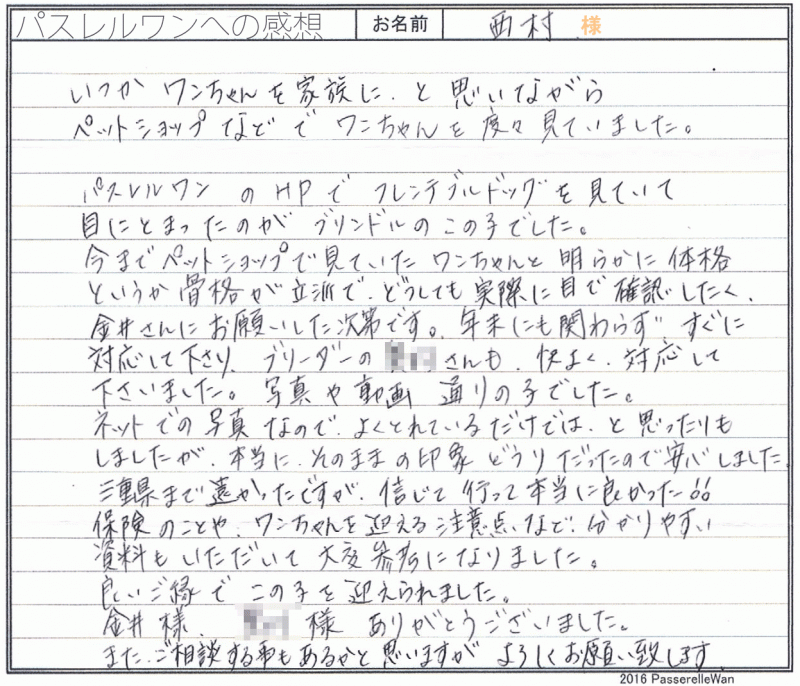 パスレルワンへの感想 お名前 西村 様
いつか ワンちゃんを 家族に、と 思いながら
ペットショップなどで ワンちゃんを 度々見ていました。
パスレルワン のHPで フレンチブルドッグを見ていて
目にとまったのが ブリンドルの この子でした。
今までペットショップで見ていた ワンちゃんと 明らかに 体格
というか 骨格が立派で、どうしても 実際に目で確認したく、
金井さんに お願いした次第です。年末にも関わらず すぐに
対応して下さり、ブリーダーの さんも、快よく、対応して
下さいました。写真や動画 通りの子でした。
ネットでの写真なので、よくとれているだけでは、と思ったりも
しましたが、本当に、そのままの印象 どうりだったので安心しました。
三重県まで遠かったですが、信じて行って本当に良かった!!
保険のことや、ワンちゃんを迎える注意点など、分かりやすい
資料もいただいて 大変参考になりました。
良いご縁で この子を 迎えられました。
金井様、 様 ありがとうございました。
また、ご相談する事もあるかと思いますが よろしくお願い致します。
2016 PasserelleWan